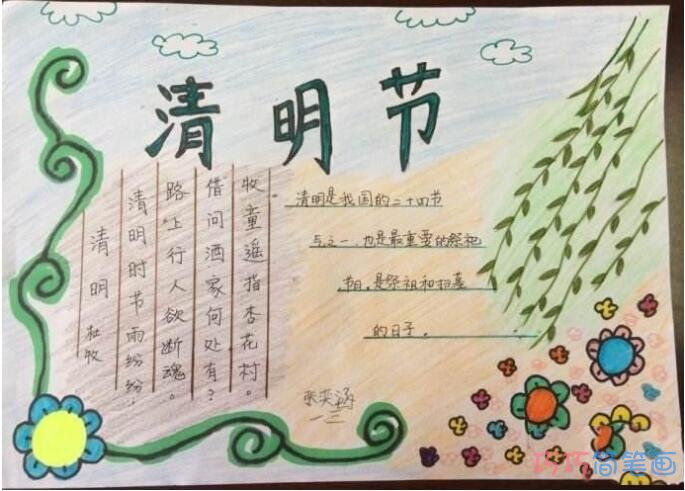 清明节
清明
杜牧
清明时节雨纷纷，
路上行人欲断魂。
借问酒家何处有？
牧童遥指杏花村。
清明是我国的二十四节
气之一，也是最重要的祭祀
节日。是祭祖和扫墓
的日子。
张奕涵
一三
巧巧简笔画